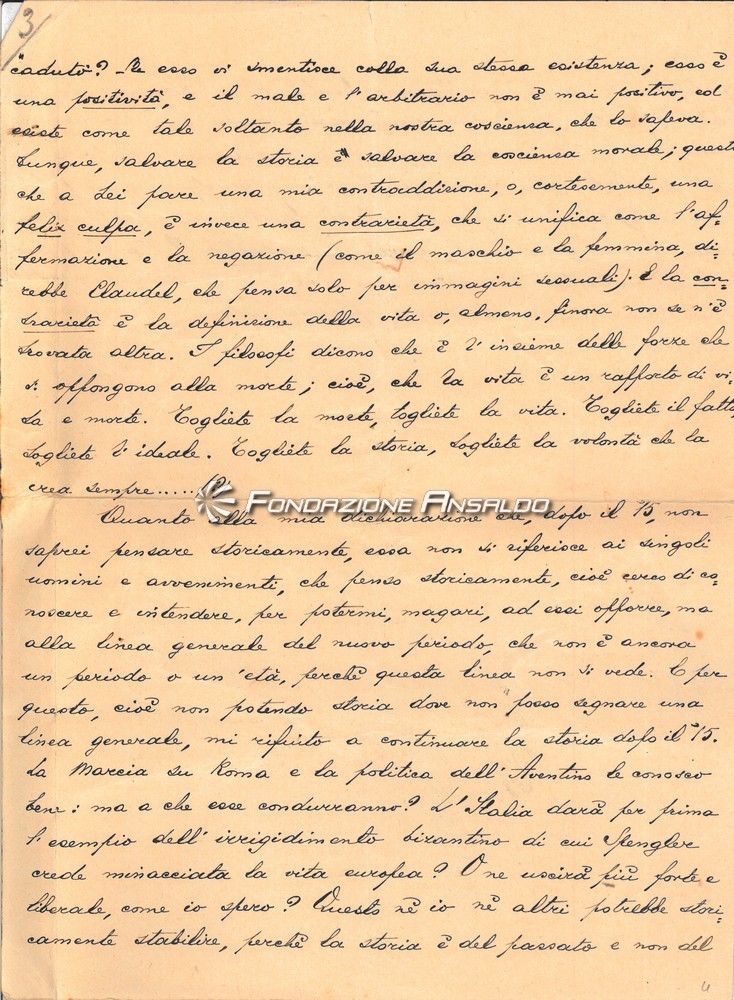 3
"caduto? Se esso vi smentisce colla sua stessa esistenza; esso è
una positività, e il male e l'arbitrario non è mai positivo, ed
esiste come tale soltanto nella nostra coscienza, che lo supera.
Dunque, salvare la storia è salvare la coscienza morale; questo
che a Lei pare una mia contraddizione, o, cortesemente, una
felix culpa, è invece una contrarietà, che si unifica come l'af-
fermazione e la negazione (come il maschio e la femmina, di-
rebbe Claudel, che pensa solo per immagini sessuali). E la con-
trarietà è la definizione della vita o, almeno, finora non se n'è
trovata altra. I filosofi dicono che è l'insieme delle forze che
si oppongono alla morte; cioè, che la vita è un rapporto di vi-
ta e morte. Togliete la morte, togliete la vita. Togliete il fatto,
togliete l'ideale. Togliete la storia, togliete la volontà che la
crea sempre.....
FONDAZIONE ANSALDO
Quanto alla mia dichiarazione che, dopo il '15, non
saprei pensare storicamente, essa non si riferisce ai singoli
uomini e avvenimenti, che penso storicamente, cioè cerco di co-
noscere e intendere, per potermi, magari, ad essi opporre, ma
alla linea generale del nuovo periodo, che non è ancora
un periodo o un'età, perchè questa linea non si vede. E per
questo, cioè non potendo storia dove non posso segnare una
linea generale, mi rifiuto a continuare la storia dopo il '15.
La Marcia su Roma e la politica dell'Aventino le conosco
bene: ma a che esse condurranno? L'Italia darà per prima
l'esempio dell'irrigidimento bizantino di cui Spengler
crede minacciata la vita europea? O ne uscirà più forte e
liberale, come io spero? Questo nè io nè altri potrebbe stori-
camente stabilire, perchè la storia è del passato e non del
4